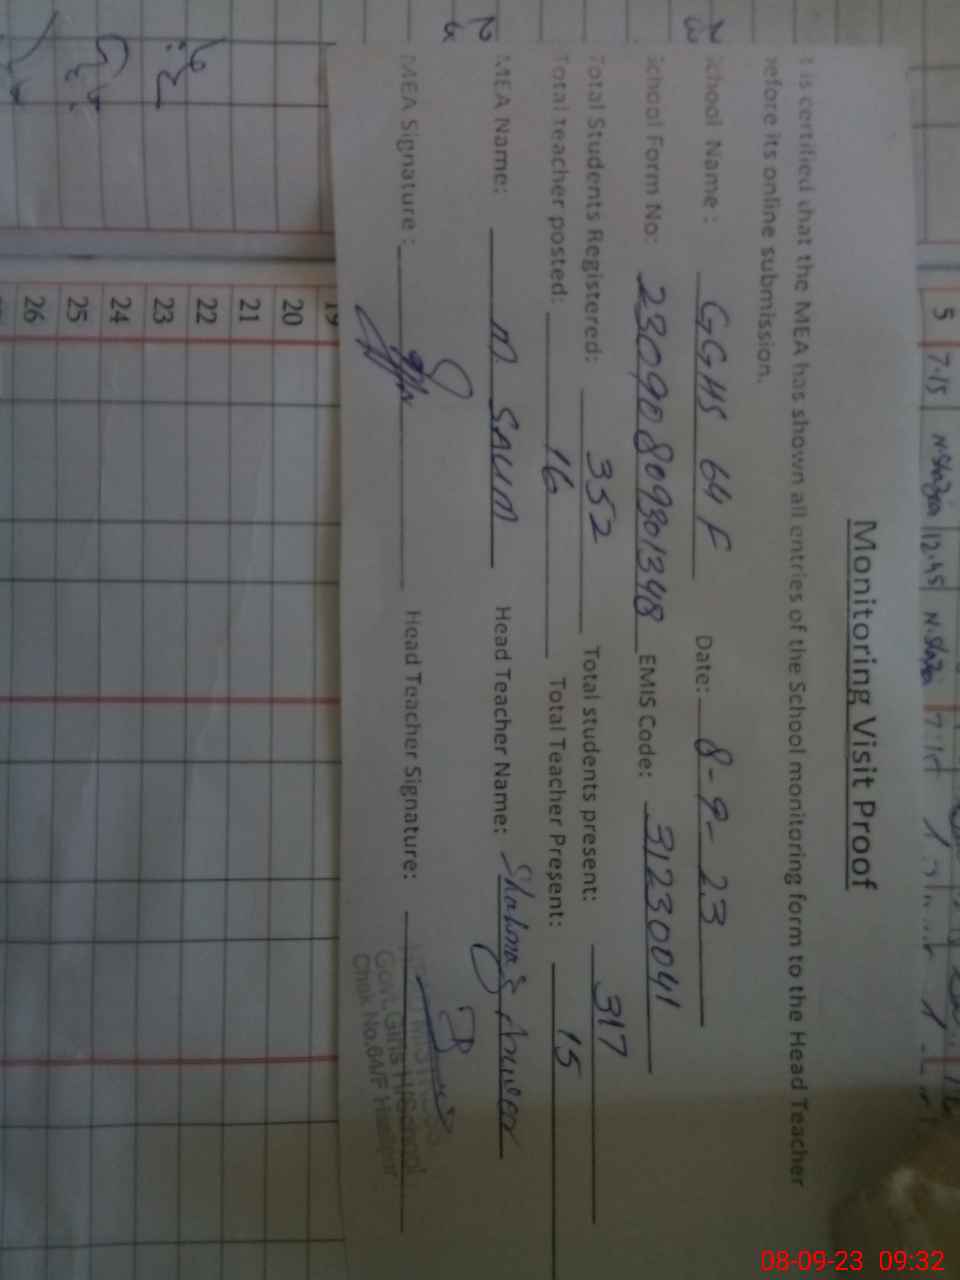 Monitoring Visit Proof
t is certified that the MEA has shown all entries of the School monitoring form to the Head Teacher
before its online submission.
School Name : GGHS 64 F Date: 8-9-23
School Form No: 23090809301348 EMIS Code: 31230041
Total Students Registered: 352 Total students present: 317
Total teacher posted: 16 Total Teacher Present: 15
MEA Name: M SALIM Head Teacher Name: Shahnaz
MEA Signature : Head Teacher Signature:
Govt. Girls H/School
Chak No.64/F
5 7.15 N.Shazia 12.45 N.Shazia
19
20
21
22
23
24
25
26
08-09-23 09:32